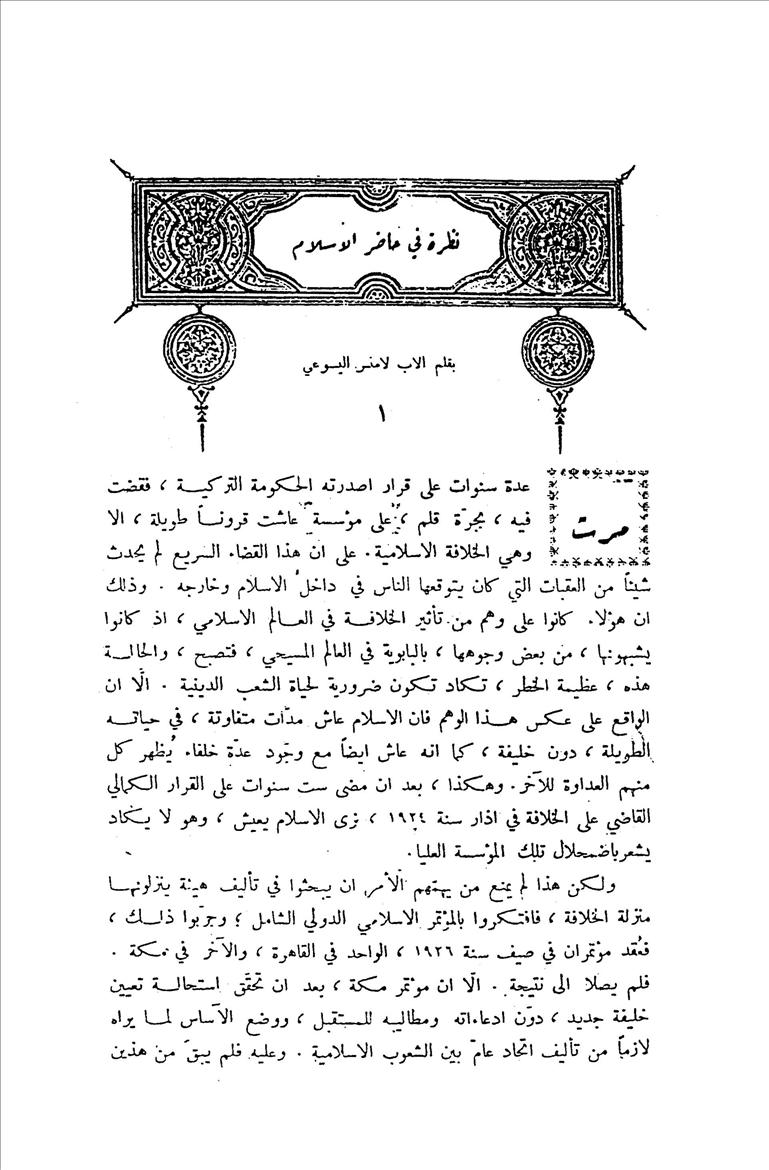 نظرة في حاضر الاسلام
بقلم الاب لامنس اليسوعي
١
مرت عدة سنوات على قرار اصدرته الحكومة التركية ، فقضت
فيه ، بجرّة قلم ، على مؤسسة عاشت قروناً طويلة ، الا
وهي الخلافة الاسلامية . على ان هذا القضاء السريع لم يحدث
شيئاً من العقبات التي كان يتوقعها الناس في داخل الاسلام وخارجه . وذلك
ان هؤلاء كانوا على وهم من تأثير الخلافة في العالم الاسلامي ، اذ كانوا
يشبهونها ، من بعض وجوهها ، بالبابوية في العالم المسيحي ، فتصبح ، والحالة
هذه ، عظيمة الخطر ، تكاد تكون ضرورية لحياة الشعب الدينية . الّا ان
الواقع على عكس هذا الوهم فان الاسلام عاش مدّات متفاوتة ، في حياته
الطويلة ، دون خليفة ، كما انه عاش ايضاً مع وجود عدّة خلفاء يُظهر كل
منهم العداوة للآخر . وهكذا ، بعد ان مضى ست سنوات على القرار الكمالي
القاضي على الخلافة في اذار سنة ١٩٢٤ ، نرى الاسلام يعيش ، وهو لا يكاد
يشعر باضمحلال تلك المؤسسة العليا .
ولكن هذا لم يمنع من يهتهم الأمر ان يبحثوا في تأليف هيئة ينزلونها
منزلة الخلافة ، فافتكروا بالمؤتمر الاسلامي الدولي الشامل ؛ وجرّبوا ذلك ،
فعُقد مؤتمران في صيف سنة ١٩٢٦ ، الواحد في القاهرة ، والآخر في مكة .
فلم يصلا الى نتيجة . الّا ان مؤتمر مكة ، بعد ان تحقّق استحالة تعيين
خليفة جديد ، دوّن ادعاءاته ومطاليبه للمستقبل ، ووضع الأساس لما يراه
لازماً من تأليف اتحاد عامّ بين الشعوب الاسلامية . وعليه فلم يبقَ من هذين